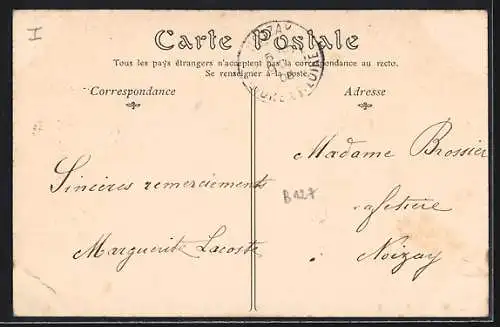 I
Carte Postale
Tous les pays étrangers n'acceptent pas la correspondance au recto.
Se renseigner à la poste.
Correspondance
Adresse
Sincères remerciements
Marguerite Lacoste
Madame Brossier
cafetière
Noizay
B127